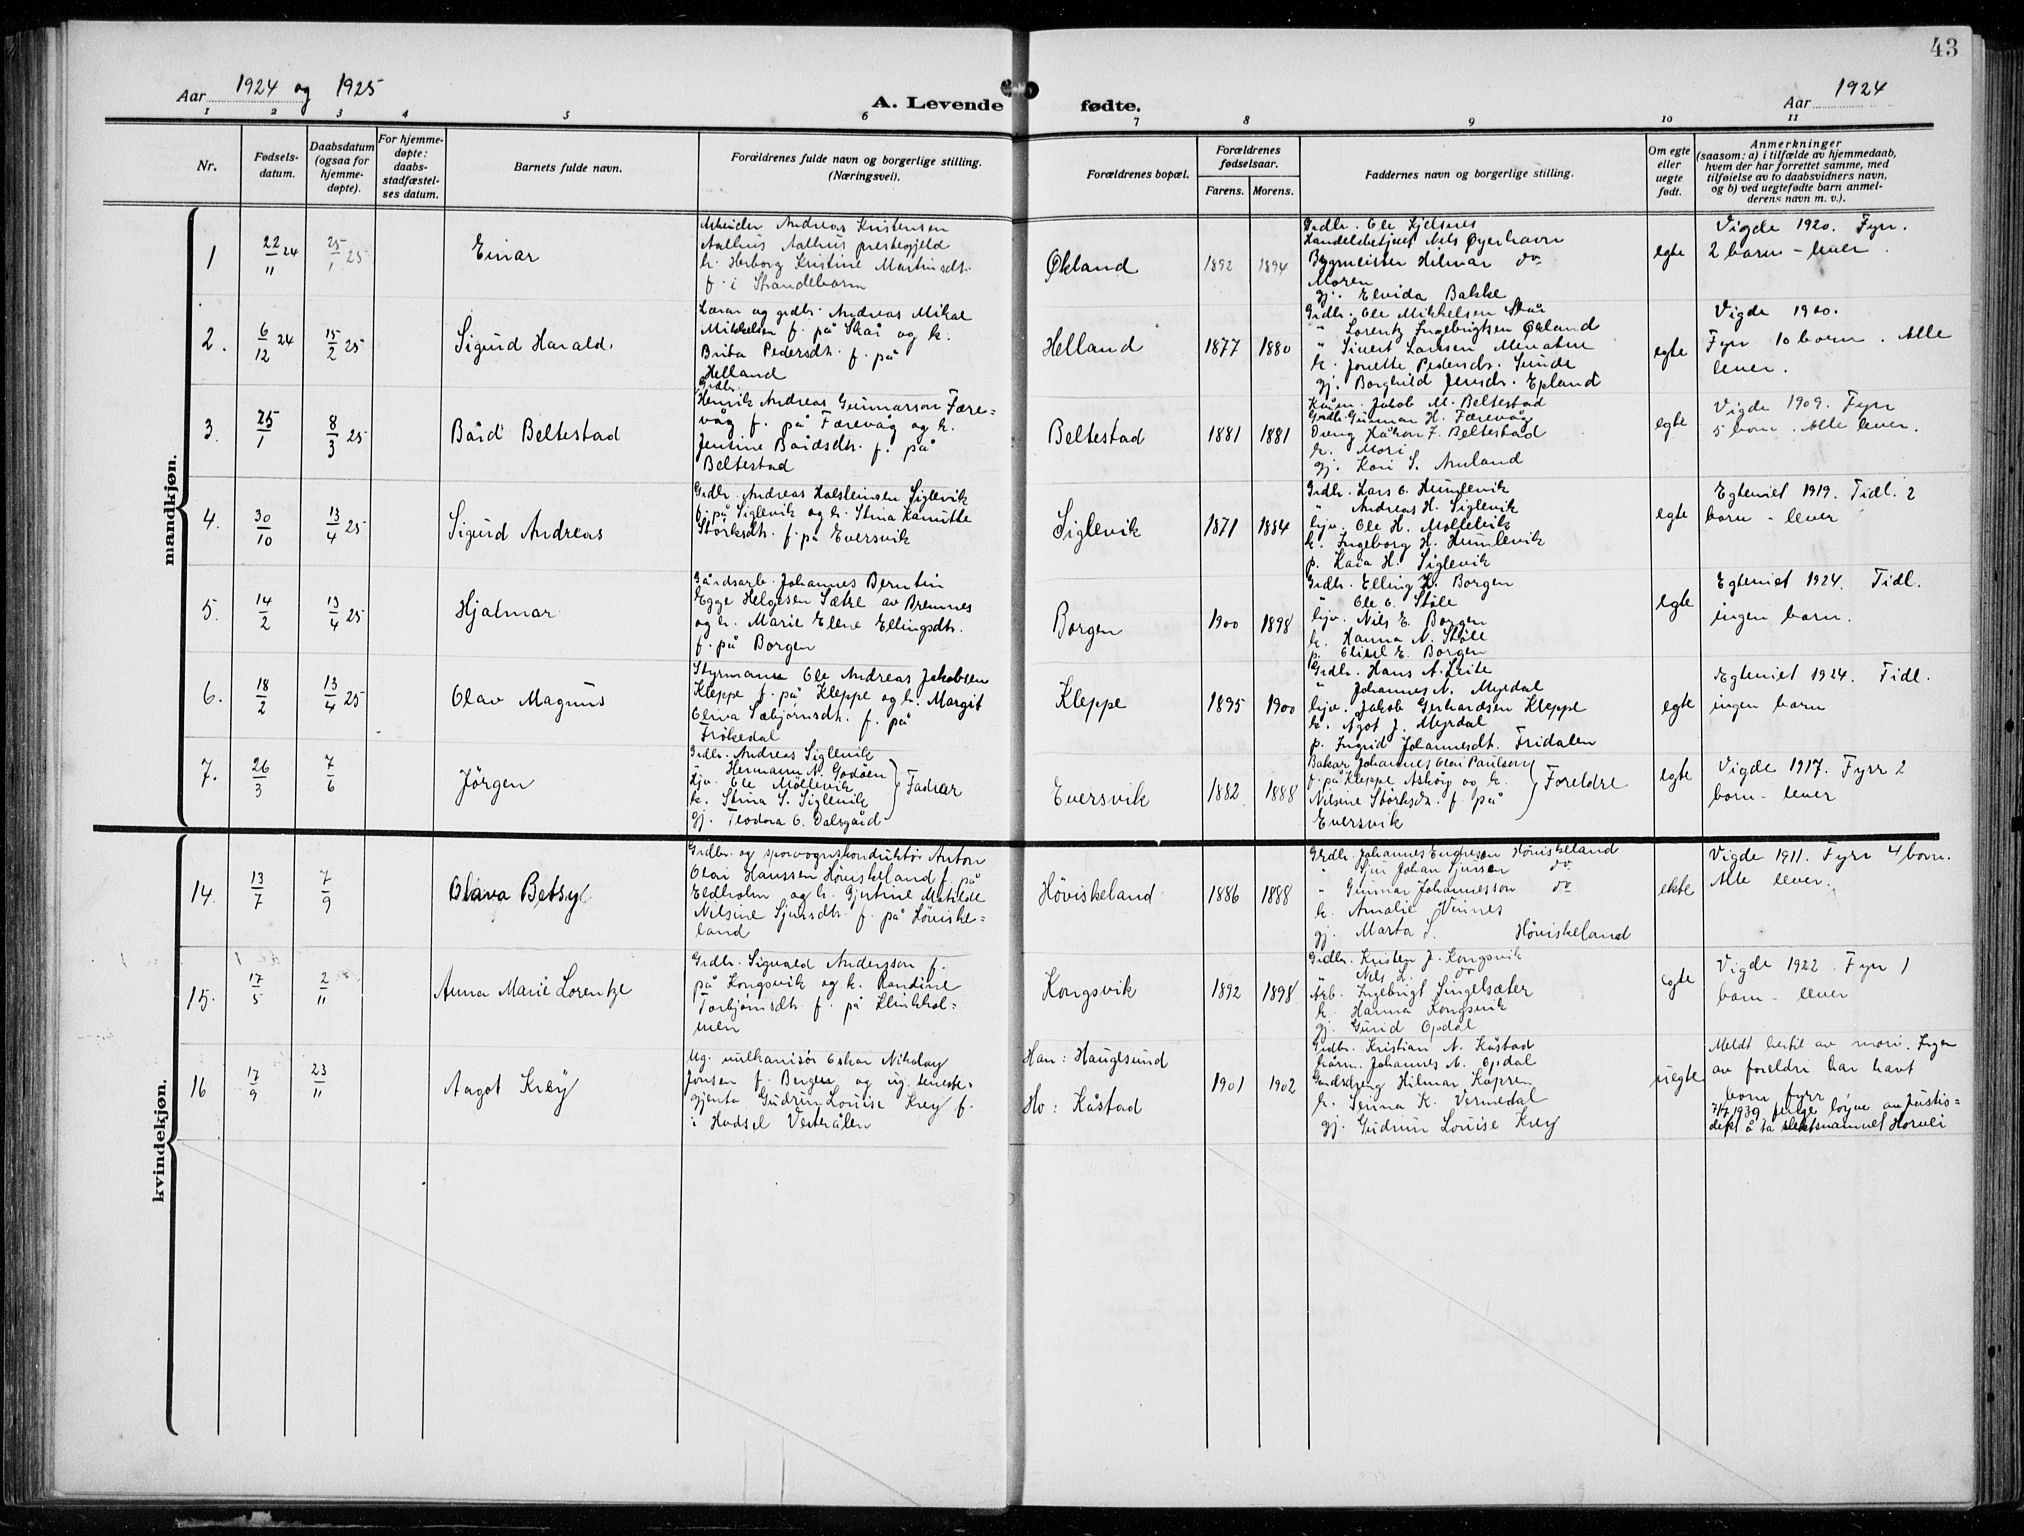 43
Aar 1924 og 1925
A. Levende fødte.
Aar 1924
1 2 3 4 5 6 7 8 9 10 11
Nr.
Fødsels-
datum.
Daabsdatum
(ogsaa for
hjemme-
døpte).
For hjemme-
døpte:
daabs-
stadfæstel-
ses datum.
Barnets fulde navn.
Forældrenes fulde navn og borgerlige stilling.
(Næringsvei).
Forældrenes bopæl.
Forældrenes
fødselsaar.
Farens. Morens.
Faddernes navn og borgerlige stilling.
Om egte
eller
uegte
født.
Anmerkninger
(saasom: a) i tilfælde av hjemmedaab,
hvem der har forrettet samme, med
tilføielse av to daabsvidners navn,
og b) ved uegtefødte barn anmel-
derens navn m. v.).
mandkjøn.
1
22/11 24
25/1 25
Einar
Arbeider Andreas Kristensen
Aalhus Aalhus prestegjeld
k. Herborg Kristine Martinsdt.
f. i Strandebarm
Økland
1892 1894
Grdbr. Ole
Handelsbetjent Nils Øyerhavn
Bygmeister Hilmar do
Moren
gj. Elvida Bakke
egte
Vigde 1920. Fyrr.
2 barn - lever.
2.
6/12 24
15/2 25
Sigurd Harald.
Lærar og grdbr. Andreas Mikal
Mikkelsen f. på Skår og k.
Brita Pedersdt. f. på
Helland
Helland
1877 1880
Grdbr. Ole Mikkelsen Skår
" Lorentz Ingebrigtsen Økland
" Sivert Larssen
k. Jonette Pedersdt. Sunde
gj. Borghild Jensdt. Epland
egte
Vigde 1900.
Fyrr 10 born. Alle
lever.
3.
25/1
8/3 25
Bård Beltestad
Grdbr.
Henrik Andreas Gunnarson Fære-
våg f. på Færevåg og k.
Jensine Bårdsdt. f. på
Beltestad
Beltestad
1881 1881
Jakob M. Beltestad
Grdbr. Gunnar H. Færevåg
Dreng Håkon F. Beltestad
k. Mori
gj. Kari S. Amland
egte
Vigde 1909. Fyrr
5 born. Alle lever.
4.
30/10
13/4 25
Sigurd Andreas
Grdbr. Andreas Halsteinsen Siglevik
f. på Siglevik og k. Stina Kanutte
Størksdt. f. på Eversvik
Siglevik
1871 1884
Grdbr. Lars O. Humlevik
" Andreas H. Siglevik
Ole H. Møllevik
k. Ingeborg H. Humlevik
p. Kaia H. Siglevik
egte
Egteviet 1919. Tidl. 2
barn - lever
5.
14/2
13/4 25
Hjalmar
Gårdsarb. Johannes Berntin
Egge Helgesen Sætre av Bremnes
og k. Marie Elene Ellingsdt.
f. på Borgen
Borgen
1900 1898
Grdbr. Elling H. Borgen
" Ole O. Støle
Nils E. Borgen
k. Hanna N. Støle
p. E. Borgen
egte
Egteviet 1924. Tidl.
ingen barn.
6.
18/2
13/4 25
Olav Magnus
Styrmann Ole Andreas Jakobsen
Kleppe f. på Kleppe og k. Margit
Oliva Sæbjørnsdt. f. på
Frøkedal
Kleppe
1895 1900
Grdbr. Hans A. Leite
" Johannes N. Myrdal
Jakob Gerhardsen Kleppe
k. Agot J. Myrdal
p. Ingrid Johannesdt. Fridalen
egte
Egteviet 1924. Tidl.
ingen barn
7.
26/3
7/6
Jørgen
Grdbr. Andreas Siglevik
" Hermann N. Godøen
Ole Møllevik
k. Stina S. Siglevik
gj. Teodora O. Dalsgård
Fadrar
Eversvik
1882 1888
Bakar Johannes Olai Paulsen
f. på Kleppe Askøy og k.
Nilsine Størksdt. f. på
Eversvik
Foreldre
egte
Vigde 1917. Fyrr 2
born - lever
kvindekjøn.
14.
13/7
7/9
Olava Betsy
Grdbr. og sporvognskonduktør Anton
Olai Hanssen Høviskeland f. på
Eldholm og k. Gjertine Matilde
Nilsine Sjursdt. f. på Høviske-
land
Høviskeland
1886 1888
Grdbr. Johannes Høviskeland
" Sjur Johan Sjursen do
" Gunnar Johannesson do
k. Amalie Vinnes
gj. Marta S. Høviskeland
ekte
Vigde 1911. Fyrr 4 born.
Alle lever.
15.
17/5
2/11
Anna Marie Lorentze
Grdbr. Sigvald Andersson f.
på Kongsvik og k. Randine
Torbjørnsdt. f. på Klinkhol-
men
Kongsvik
1892 1898
Grdbr. Kristen J. Kongsvik
Nils L. do
Arb. Ingebrigt Singelsæter
k. Hanna Kongsvik
gj. Gurid Opdal
egte
Vigde 1922. Fyrr 1
barn - lever
16
17/9
23/11
Aagot Krey
Ug. vulkanisør Oskar Nikolay
Jonsen f. Bergen og ug. teneste-
gjenta Gudrun Louise Krey f.
i Hadsel Vesterålen
Han: Haugesund
Ho: Kåstad
1901 1902
Grdbr. Kristian N. Kåstad
Johannes N. Opdal
Gardsdreng Hilmar Kopren
k. Serina K. Vermedal
gj. Gudrun Louise Krey
uegte
Meldt hertil av mori. Ingen
av foreldri har havt
born fyrr
7/7 1939 fenge løyve av Justis-
dept å ta slektsnamnet Horveli